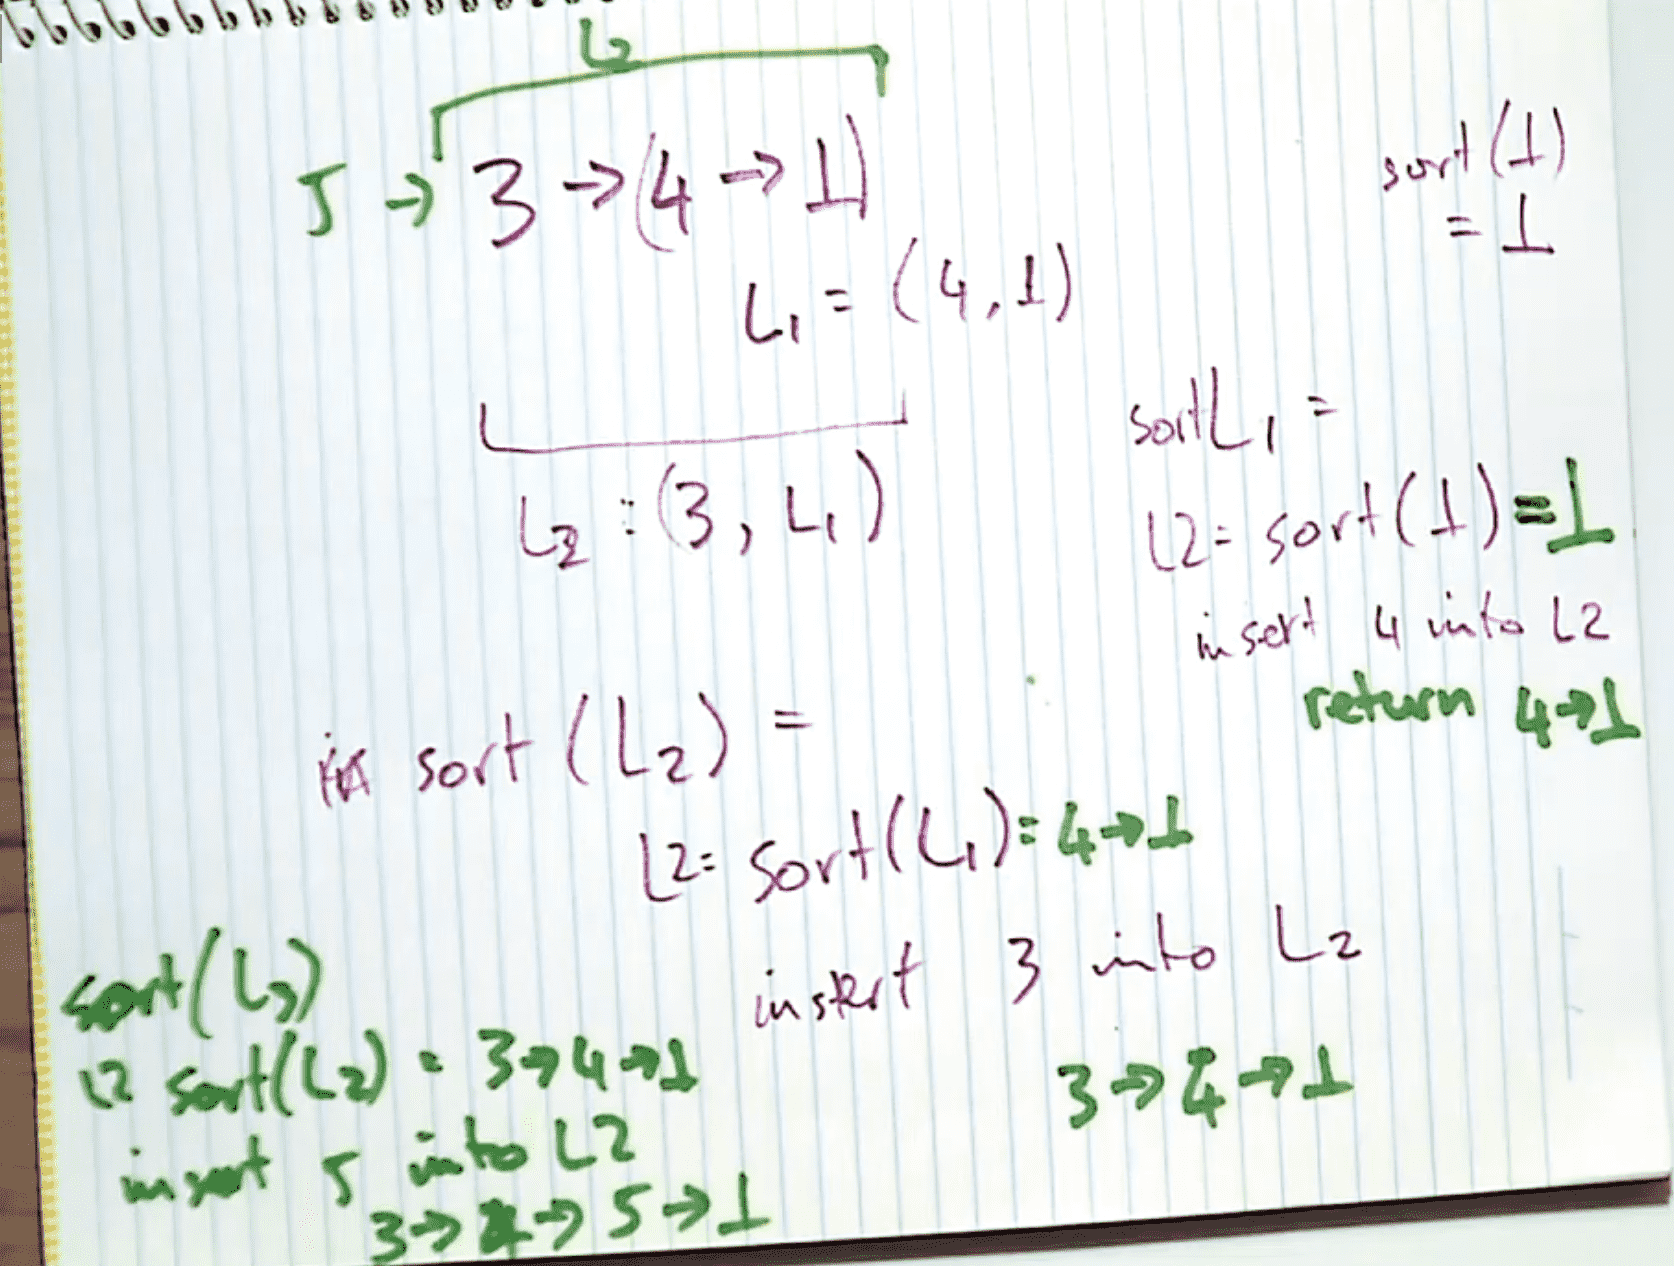 L2
5 → 3 → (4 → 1)
L1 = (4, 1)
L2 : (3, L1)
sort (1)
= 1
sort L1 =
L2 = sort (1) = 1
insert 4 into L2
return 4 → 1
sort (L2) =
L2 = sort (L1) = 4 → 1
insert 3 into L2
3 → 4 → 1
sort (L3)
L2 sort (L2) = 3 → 4 → 1
insert 5 into L2
3 → 4 → 5 → 1